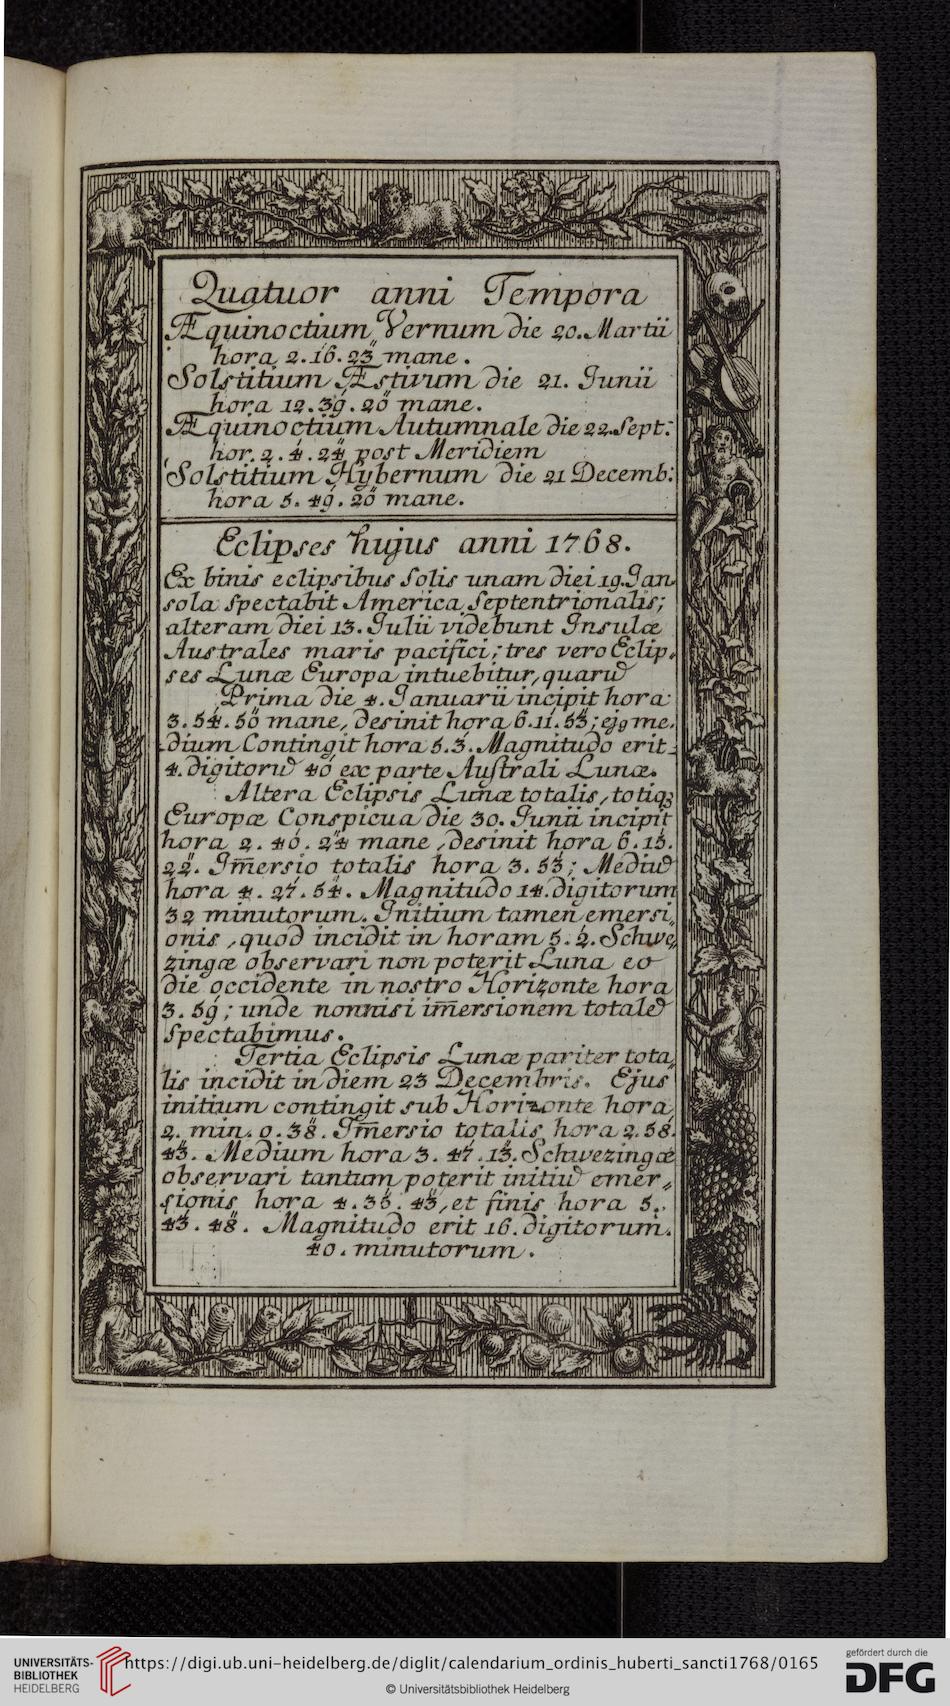 Quatuor anni Tempora
Æquinoctium Vernum die 20. Martii
hora 2. 16́. 23̋ mane.
Solstitium Æstivum die 21. Junii
hora 12. 39́. 20̋ mane.
Æquinoctium Autumnale die 22. Sept:
hor. 2. 4́. 24̋ post Meridiem
Solstitium Hybernum die 21 Decemb:
hora 5. 49́. 20̋ mane.
Eclipses hujus anni 1768.
Ex binis eclipsibus Solis unam diei 19. Jan
sola spectabit America Septentrionalis;
alteram diei 13. Julii videbunt Insulæ
Australes maris pacifici; tres vero Eclip,
ses Lunæ Europa intuebitur, quarū
Prima die 4. Januarii incipit hora
3. 54́. 50̋ mane, desinit hora 6. 11́. 53̋; ejꝰ me,
dium Contingit hora 5. 3́. Magnitudo erit
4. digitorū 40́ ex parte Australi Lunæ.
Altera Eclipsis Lunæ totalis, totiqꝫ
Europæ Conspicua die 30. Junii incipit
hora 2. 40́. 24̋ mane, desinit hora 6. 15́.
22̋. Im̄ersio totalis hora 3. 53́; Mediū
hora 4. 27́. 54̋. Magnitudo 14. digitorum
32 minutorum. Initium tamen emersi,,
onis, quod incidit in horam 5. 2́. Schwe,,
zingæ observari non poterit Luna eo
die occidente in nostro Horizonte hora
3. 59́; unde nonnisi im̄ersionem totalē
Spectabimus.
Tertia Eclipsis Lunæ pariter tota,,
lis incidit in diem 23 Decembris. Ejus
initium contingit sub Horizonte hora
2. min. 0. 38̋. Im̄ersio totalis hora 2. 58́.
43̋. Medium hora 3. 47́. 13̋. Schwezingæ
observari tantum poterit initiū emer,,
sionis hora 4. 35́. 43̋, et finis hora 5.
43́. 48̋. Magnitudo erit 16. digitorum.
40. minutorum.
UNIVERSITÄTS-
BIBLIOTHEK
HEIDELBERG
https://digi.ub.uni-heidelberg.de/diglit/calendarium_ordinis_huberti_sancti1768/0165
© Universitätsbibliothek Heidelberg
gefördert durch die
DFG